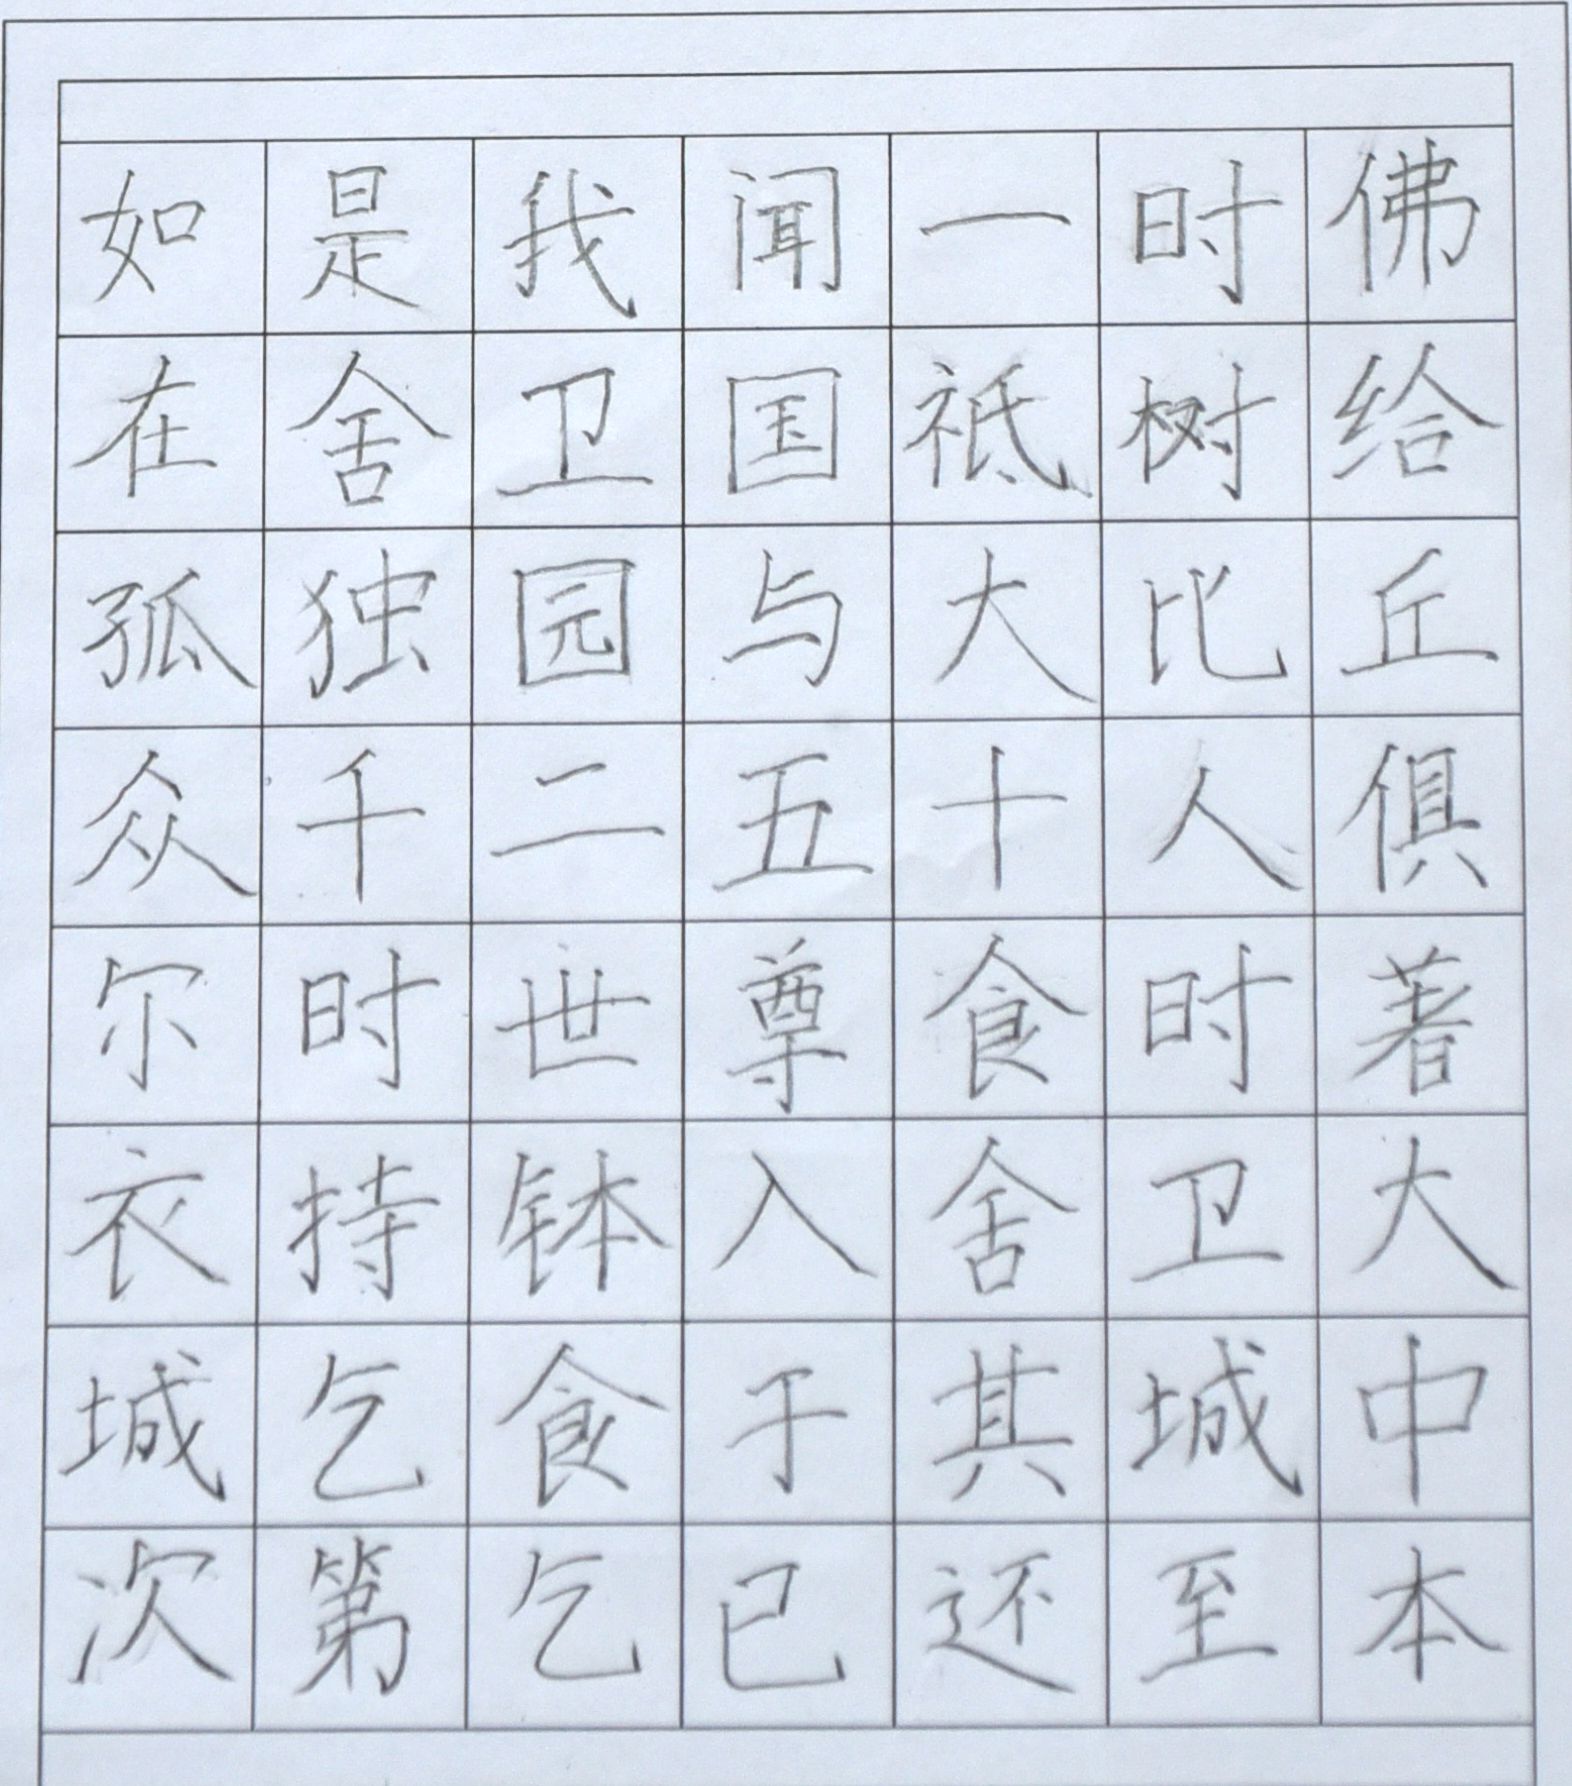 如是我闻一时佛
在舍卫国祇树给
孤独园与大比丘
众千二五十人俱
尔时世尊食时著
衣持钵入舍卫大
城乞食于其城中
次第乞已还至本